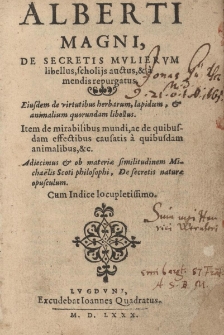 ALBERTI
MAGNI,
DE SECRETIS MVLIERVM
libellus, scholijs auctus, & à
mendis repurgatus.
Eiusdem de virtutibus herbarum, lapidum, &
animalium quorundam libellus.
Item de mirabilibus mundi, ac de quibus-
dam effectibus causatis à quibusdam
animalibus, &c.
Adiecimus & ob materiæ similitudinem Mi-
chaëlis Scoti philosophi, De secretis naturæ
opusculum.
Cum Indice locupletissimo.
LVGDVNI,
Excudebat Ioannes Quadratus.
M. D. LXXX.